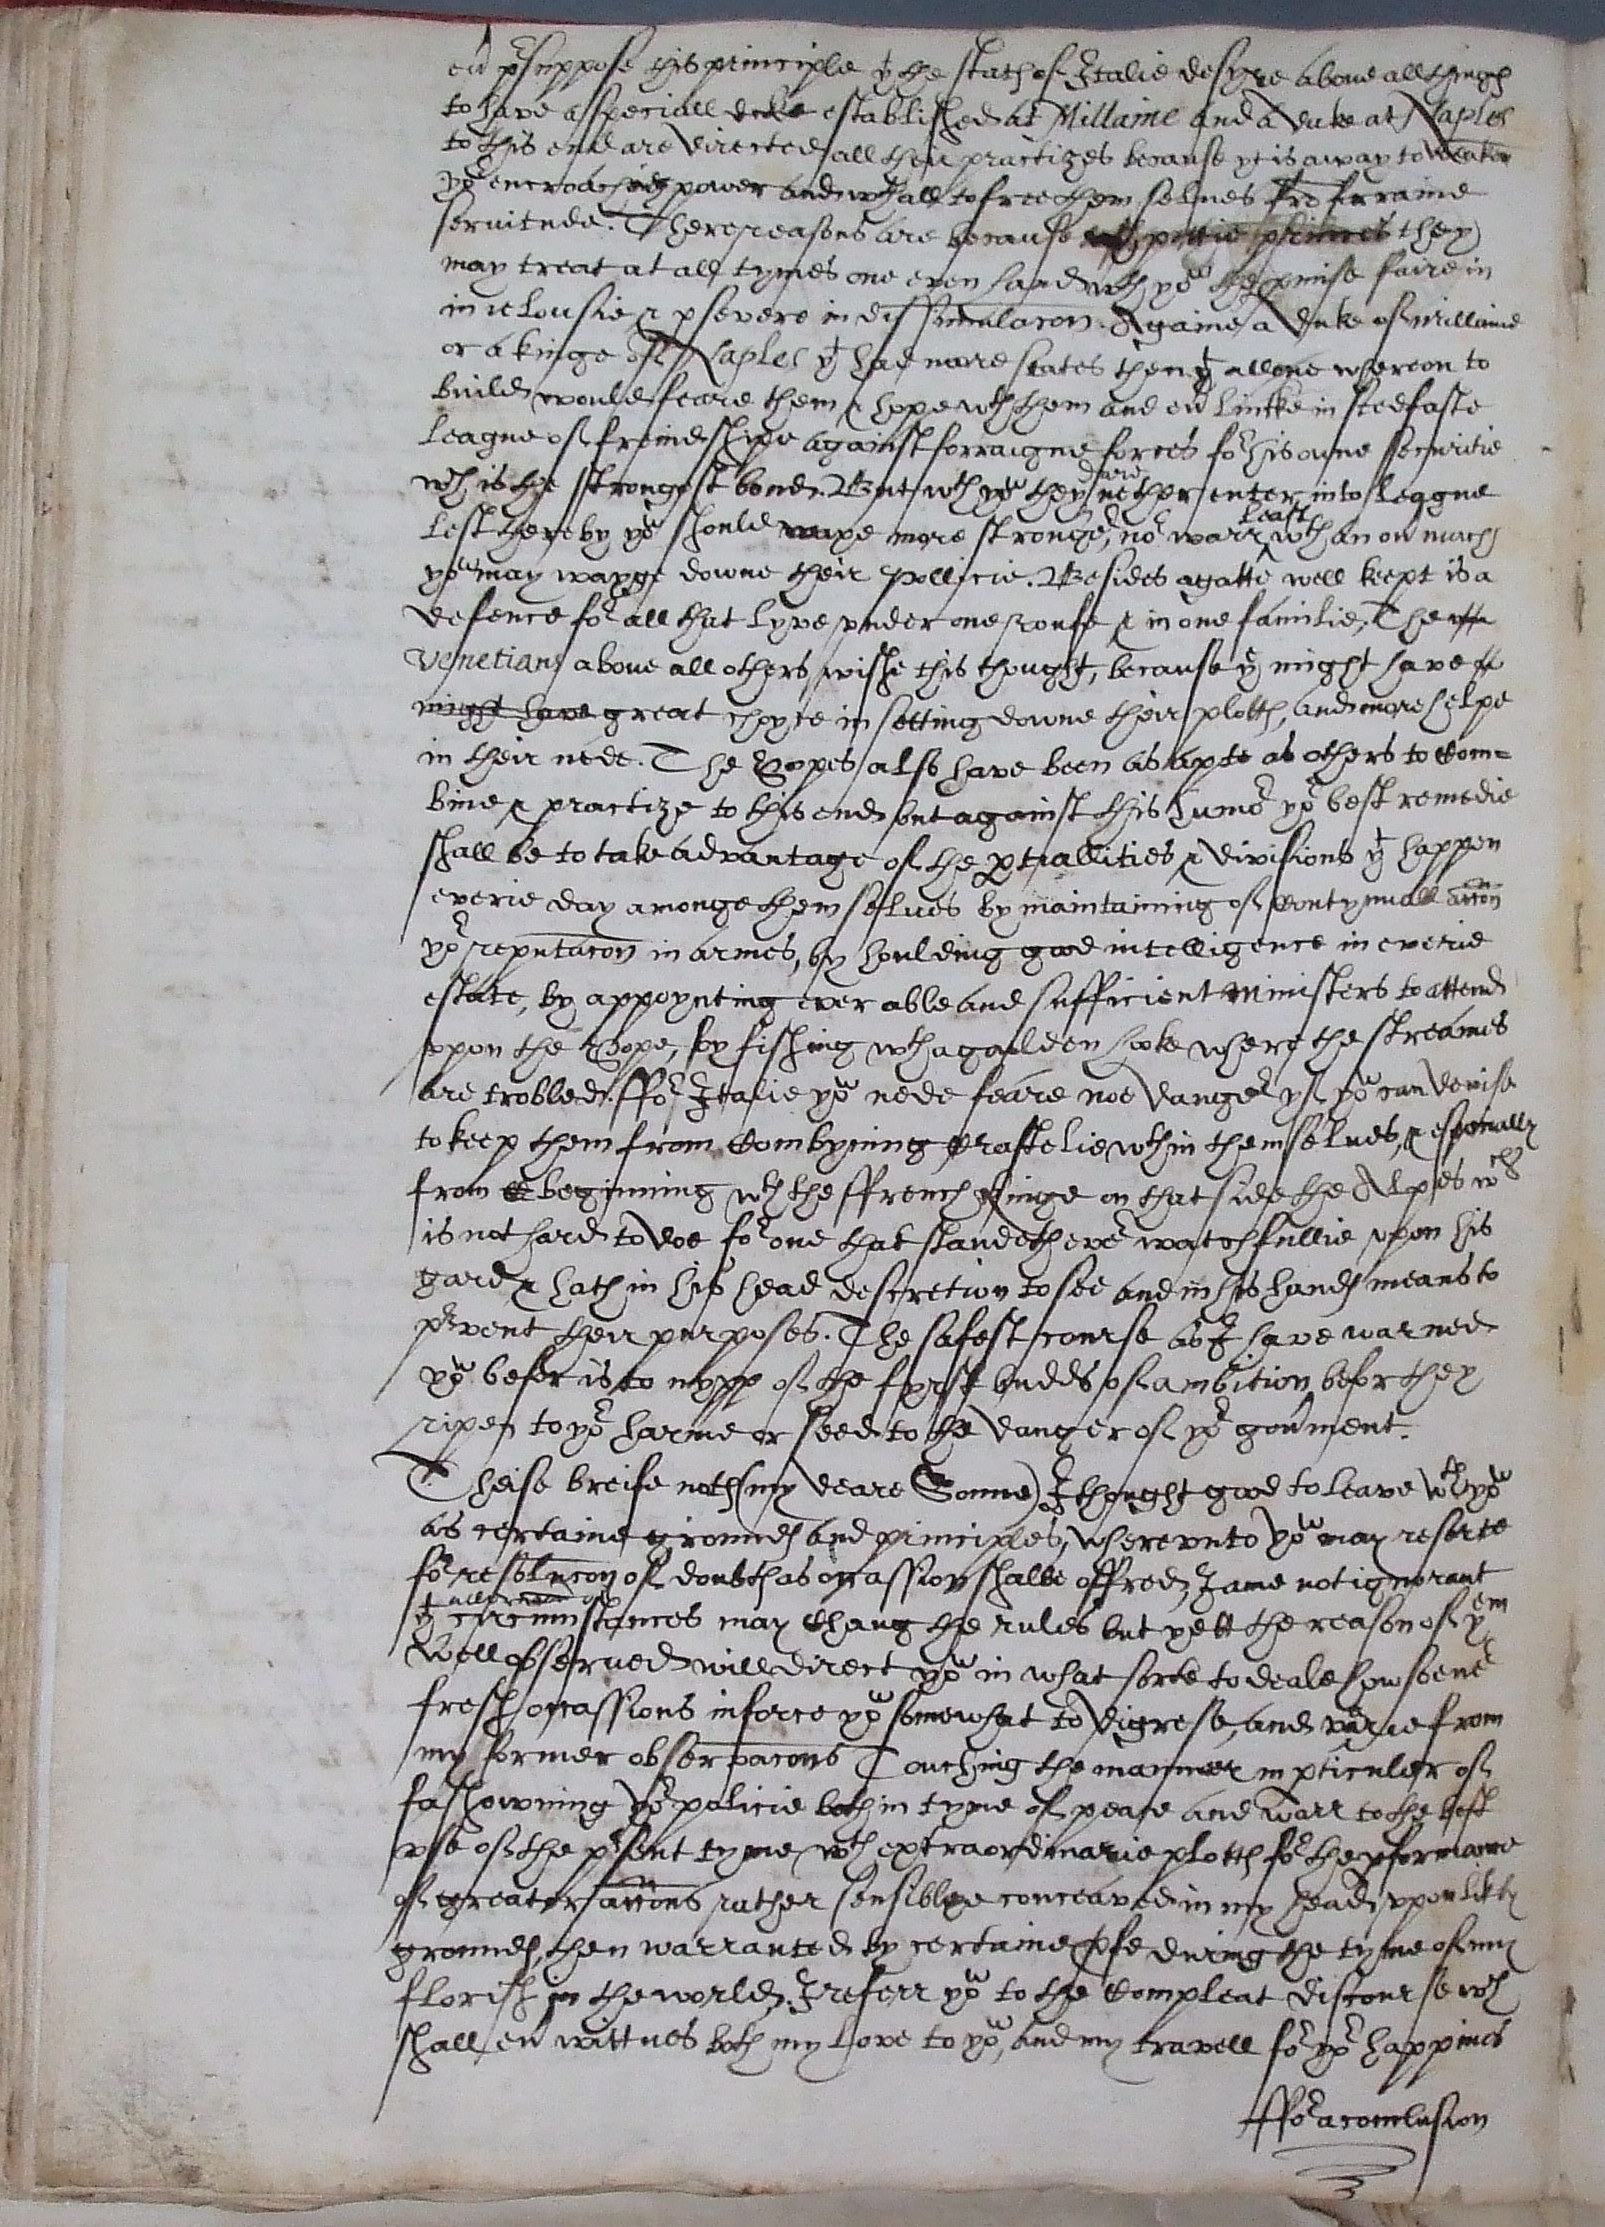 eũ p̃suppose this principle yt the stats of Italie desyre aboue all things
to have a speciall duke established at Millaine and a duke at Naples
to this end are directed all their practizes because yt is a way to weaken
yor encroaching power and wthall to free them selues fro forraine
seruitude. There reasons are because wth pettie princes they
may treat at all tymes one even hand wth you they
in ielousie & psevere in dissimulacon. Againe a duke of Millaine
or a kinge of Naples yt had noe states then yt allone whereon to
build would feare them & hope wth them and eũ lincke in stedfaste
league of freindshipe against forraigne forces for his owne securitie
wch is the strongest bond. But wth you they dare nether enter into league
lest thereby you should waxe more stronge, nor warr least wth an ou mach
you may waygh downe their pollicie. Besides a gatte well kept is a
defence for all that lyve vnder one roufe & in one familie, The
Venetians aboue all others wishe this thought, because yt might have
might have great choyce in setting downe their plotts, and more helpe
in their nede. The Popes also have been as apte as others to com=
bine & practize to this end but against this humor yor best remedie
shall be to take advantage of the ptiallities & divisions yt happen
everie day amonge them selues by maintaining of contynuall accon
yor reputacon in armes, by houlding good intelligence in everie
estate, by appoynting ever able and sufficient ministers to attend
vpon the Pope, by fishing wth a goulden hooke where the streames
are trobled. ffor Italie you nede feare noe danger yf you can devise
to keep them from combyning wthin them selues, & espetially
from beginning wth the ffrench kinge on that side the Alpes wch
is not hard to doe for one that standeth ever watchfullie vpon his
gard & hath in his head descretion to see and in his hands means to
p̃vent their purposes. The safest course as I have warned
you befor is to nypp of the fyrst budds of ambition befor they
ripen to yor harme or seed to the danger of yor goũment.
Theise breife nots (my deare Sonne) I thought good to leave wth you
as certaine grounds and principles, wherevnto you may resorte
for resolucon of doubts as occassion shalbe offred, I ame not ignorant
yt circumstances may chang the rules but yett the reason of yem
Well obserued will direct you in what sorte to deale howsoeuer
fresh occassions inforce you somewhat to digresse, and varie from
my former observacons Touching the manner in pticuler of
fashowning yor policie both in tyme of peace and warr to the best
vse of the p̃sent tyme wth extraordinarie plotts for the pformance
of greater accons rather sensiblye conceaved in my head vpon likly
grounds, then warranted by certaine pfe during the tyme of my
florish in the world, I referr you to the compleat discourse wch
shall eũ wittnes both my love to you, and my travell for yor happines
ffor a conclusion